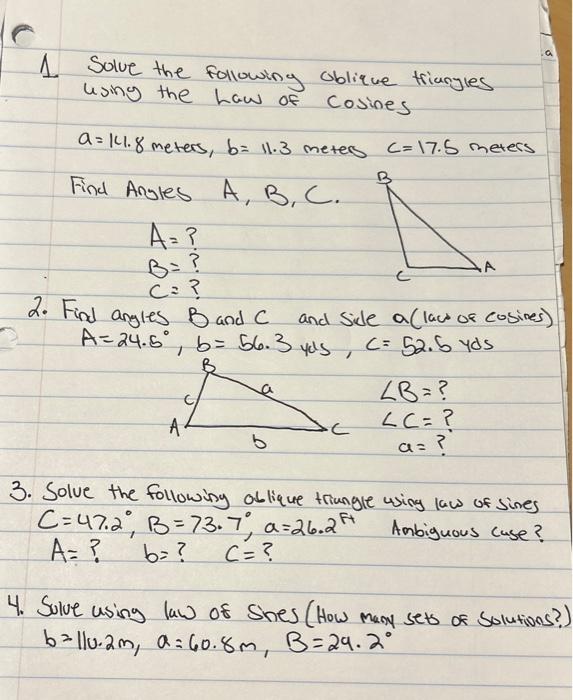 1. Solve the following oblique triangles
using the Law of Cosines
a = 14.8 meters, b = 11.3 meters C = 17.5 meters
Find Angles A, B, C.
A = ?
B = ?
C = ?
B
C
A
2. Find angles B and C and side a (law of cosines)
A = 24.5°, b = 56.3 yds, C = 52.5 yds
B
c
a
A
C
b
∠B = ?
∠C = ?
a = ?
3. Solve the following oblique triangle using law of sines
C = 47.2°, B = 73.7°, a = 26.2 ft Ambiguous case?
A = ? b = ? C = ?
4. Solve using law of sines (How many sets of solutions?)
a = 60.8m, B = 29.2°